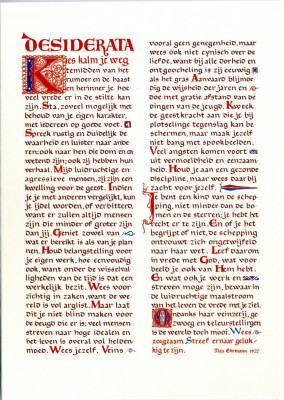 DESIDERATA
Kies kalm je weg
temidden van het
rumoer en de haast
en herinner je hoe-
veel vrede er in de stilte kan
zijn. Sta, zoveel mogelijk met
behoud van je eigen karakter,
met iedereen op goede voet.
Spreek rustig en duidelijk de
waarheid en luister naar ande-
ren; ook naar hen die dom en on-
wetend zijn; ook zij hebben hun
verhaal. Mijd luidruchtige en
agressieve mensen, zij zijn een
kwelling voor de geest. Indien
je je met anderen vergelijkt, kun
je ijdel worden, of verbitterd,
want er zullen altijd mensen
zijn die minder of groter zijn
dan jij. Geniet zowel van
wat er bereikt is als van je plan-
nen. Houd belangstelling voor
je eigen werk, hoe eenvoudig
ook, want onder de wisselval-
ligheden van de tijd is dat een
werkelijk bezit. Wees voor-
zichtig in zaken, want de we-
reld is vol arglist. Maar laat
dit je niet blind maken voor
de deugd die er is; veel mensen
streven naar hoge idealen en
het leven is overal vol helden-
moed. Wees jezelf. Veins
vooral geen genegenheid, maar
wees ook niet cynisch over de
liefde, want bij alle dorheid en
ontgoocheling is zij eeuwig
als het gras. Aanvaard blijmoe-
dig de wijsheid der jaren en
doe met gratie afstand van de
dingen van de jeugd. Kweek
de geestkracht aan die je bij
plotselinge tegenslag kan be-
schermen, maar maak jezelf
niet bang met spookbeelden.
Veel angsten komen voort
uit vermoeidheid en eenzaam-
heid. Houd je aan een gezonde
discipline, maar wees daarbij
zacht voor jezelf.
Je bent een kind van de schep-
ping, niet minder dan de bo-
men en de sterren; je hebt het
recht er te zijn. En of je het
begrijpt of niet, de schepping
ontvouwt zich ongetwijfeld
naar haar wet. Leef daarom
in vrede met God, wat voor
beeld je ook van Hem hebt.
En wat ook je werk en
streven moge zijn, bewaar in
de luidruchtige maalstroom
van het leven de vrede met je ziel.
Ondanks haar veinzerij, ge-
zwoeg en teleurstellingen
is de wereld toch mooi. Wees
zorgzaam. Streef ernaar geluk-
kig te zijn. Max Ehrmann. 1927